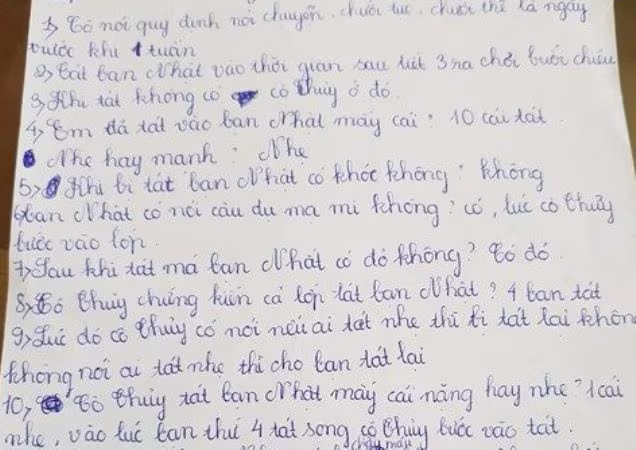 1, Cô nói quy định nói chuyện, chưởi tục, chưởi thề là ngày
trước khi 1 tuần
2, Tát bạn Nhật vào thời gian sau tiết 3 ra chơi buổi chiều
3, Khi tát không có cô Thủy ở đó.
4, Em đã tát vào bạn Nhật mấy cái? 10 cái tát.
Nhẹ hay mạnh? Nhẹ
5, Khi bị tát bạn Nhật có khóc không? không
6, bạn Nhật có nói câu du ma mi không? có, lúc cô Thủy
bước vào lớp.
7, Sau khi tát má bạn Nhật có đỏ không? Có đỏ.
8, Cô Thủy chứng kiến cả lớp tát bạn Nhật? 4 bạn tát
9, Lúc đó cô Thủy có nói nếu ai tát nhẹ thì bị tát lại không
không nói ai tát nhẹ thì cho bạn tát lại
10, Cô Thủy tát bạn Nhật mấy cái nặng hay nhẹ? 1 cái
nhẹ, vào lúc bạn thứ 4 tát song cô Thủy bước vào tát.
chảy máu